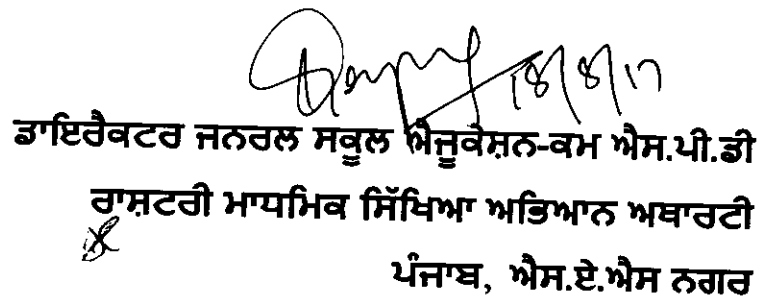 18/8/17
ਡਾਇਰੈਕਟਰ ਜਨਰਲ ਸਕੂਲ ਐਜੂਕੇਸ਼ਨ-ਕਮ ਐਸ.ਪੀ.ਡੀ
ਰਾਸ਼ਟਰੀ ਮਾਧਮਿਕ ਸਿੱਖਿਆ ਅਭਿਆਨ ਅਥਾਰਟੀ
ਪੰਜਾਬ, ਐਸ.ਏ.ਐਸ ਨਗਰ